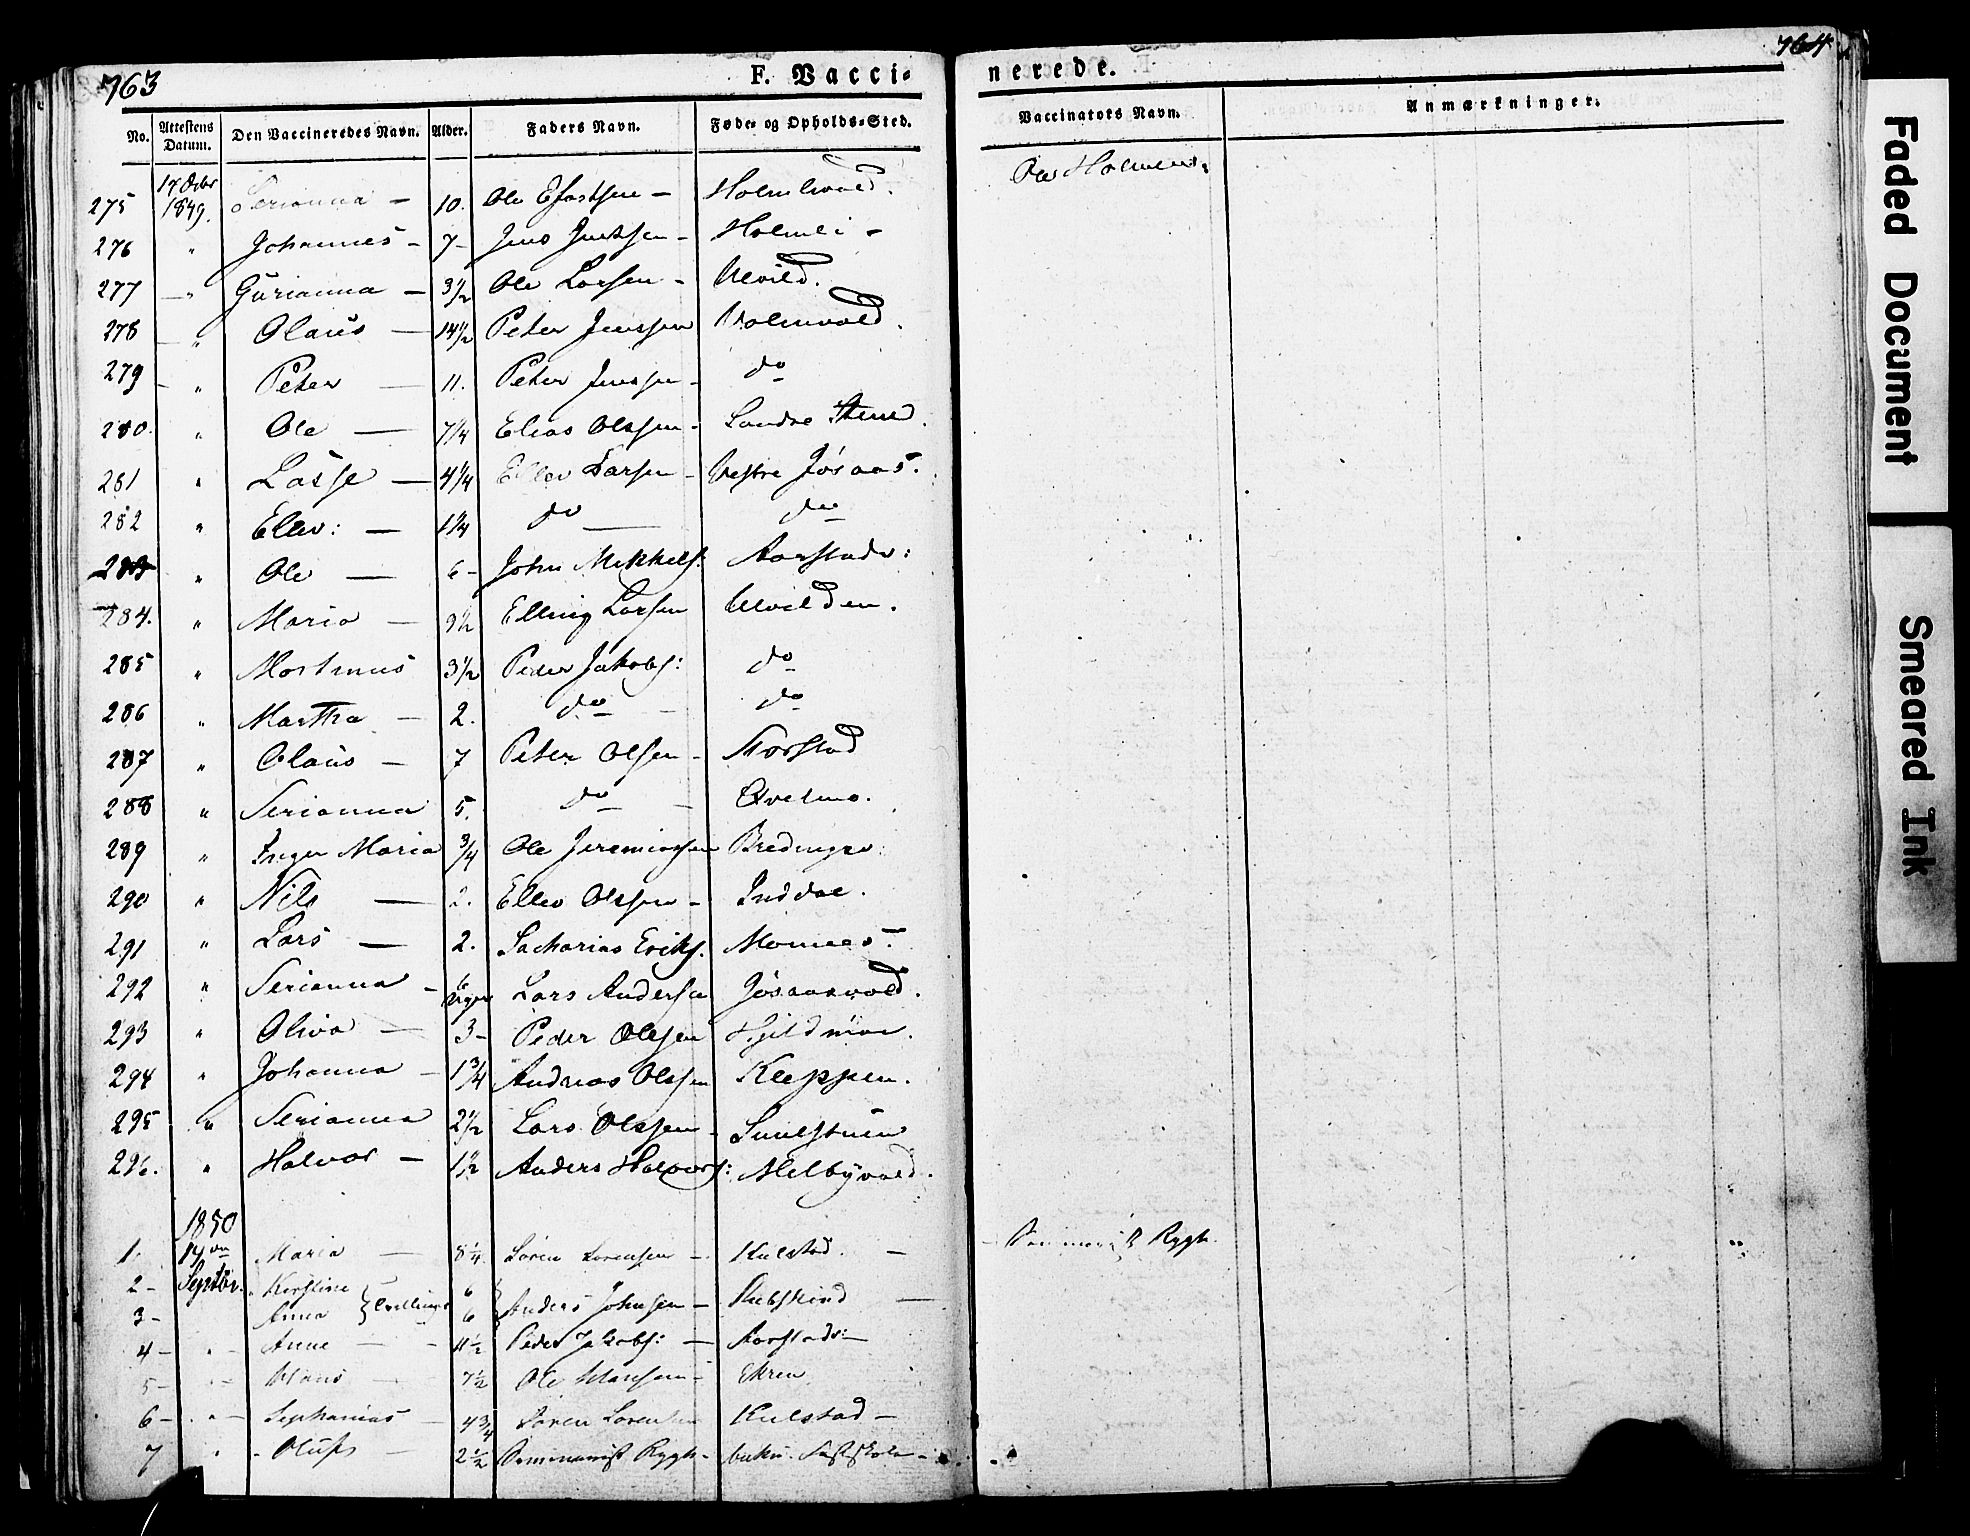 763
F. Vacci-
No. Attestens Datum. Den Vaccineredes Navn. Alder. Faders Navn. Føde- og Opholds-Sted.
17 Octbr 1849.
275 Serianna — 10. Ole Holmlivald.
276 " Johannes - 7- Jens Jenssen - Holmli -
277 — " Gurianna — 3½ Ole Larsen - Ulvild.
278 — " Olaus — 14½ Peter Jenssen Holmvald.
279 — " Peter — 11. Peter Jenssen - do
280. " Ole — 7¼ Elias Olssen - Søndre Steene.
281 " Lasse — 4¼ Ellev Larsen - Vestre Jøsaas.
282 " Ellev: — 1¼ do — do
283 " Ole — 6 - John Mikkels: Aarstadv:
284. " Maria — 9½ Elling Larsen Ulvilden.
285 " Mortinus 3½ Peder Jakobs: do
286 " Martha — 2. do — do
287 " Olaus — 7 Peter Olsen - Storstad
288 " Serianna 5. do — Qvelmo.
289 " Inger Maria ¾ Ole Jeremiassen Bredinger:
290 " Nils — 2. Ellev Olssen - Inddal.
291 " Lars — 2. Sacharias Eriks. Momees.
292 " Serianna - 6 Uger Lars Andersen Jøsaasvald.
293 " Oliva — 3- Peder Olssen Hjeldmoe.
294 " Johanna - 1¾ Andreas Olssen Kleppen.
295 " Serianna 2½ Lars Olssen - Smulstuen
296. " Halvor — 1½ Anders Halvors: Melbyvald.
1850
1. 17de Maria — 8¼ Søren Sørensen - Kulstad. —
2 - Septbr. Kirstine 6
3 - Anna } Tvillinger 6 } Anders Johnsen — Rubskind —
4 - " - Anne — - 11½ Peder Jakobs: — Aarstadv: —
5 - " - Olaus — 7½ Ole Hansen - Ekren
6 - " - Sephanias — 4¾ Søren Sørensen Kulstad —
7 " - Oluf — 2½ Seminarist Rygh - Fastskole -
764
nerede.
Vaccinators Navn. Anmærkninger.
Ole Holmli.
— Seminarist Rygh.
Faded Document
Smeared Ink